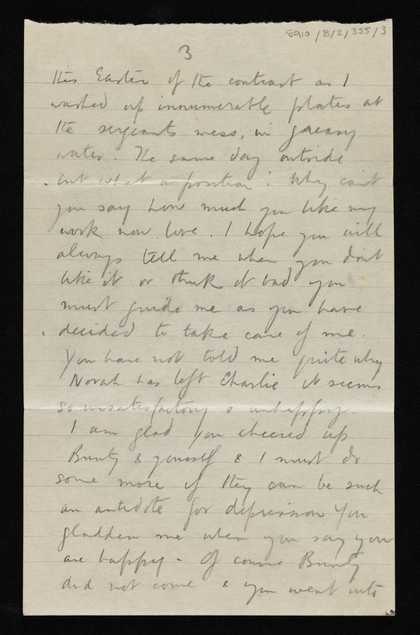 8910/8/2/355/3
3
this Easter of the contrast as I
washed up innumerable plates at
the sergeants mess, in greasy
water. The same day outside
but what a position! Why can't
you say how much you like my
work now love. I hope you will
always tell me when you don't
like it or think it bad you
must guide me as you have
decided to take care of me.
You have not told me quite why
Norah has left Charlie it seems
so unsatisfactory & unhappy.
I am glad you cheered up
Bunty & yourself & I must do
some more if they can be such
an antidote for depression You
gladden me when you say you
are happy - Of course Bunty
did not come & you went into